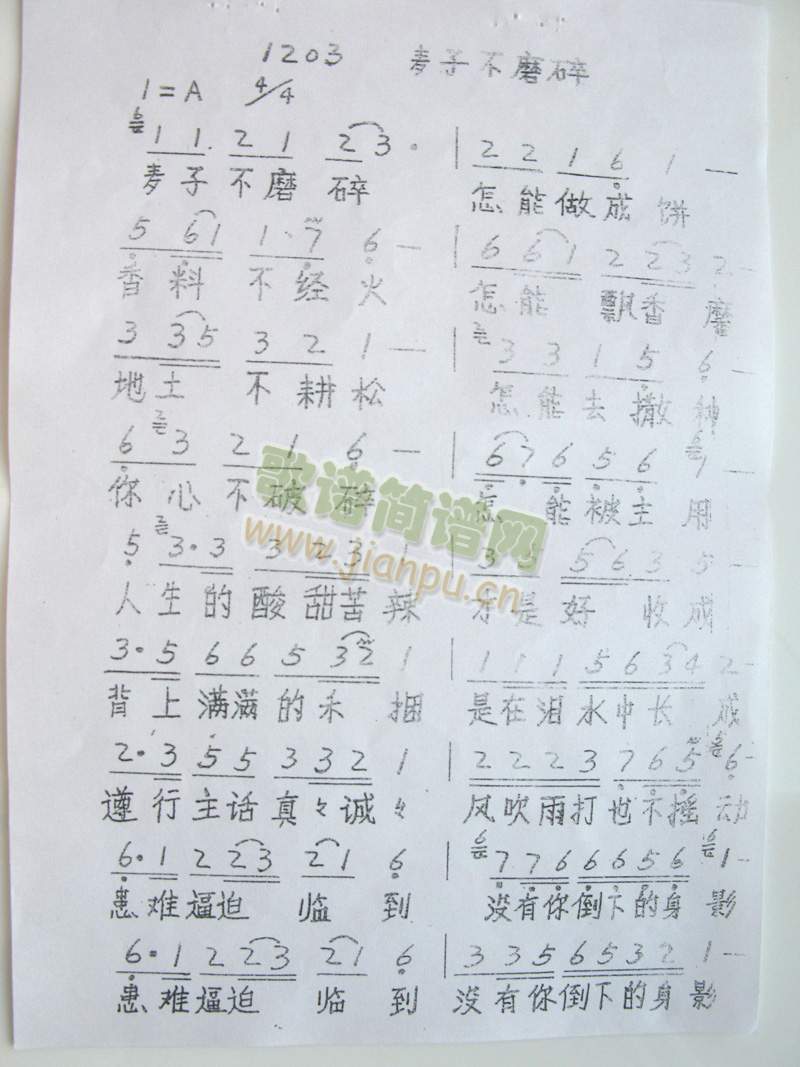 1203 麦子不磨碎
1=A 4/4
6 1 1. 2 1 2 3 · | 2 2 1 6 1 —
麦子不磨碎 怎能做成饼
5 6 1 1 · 7 6 — | 6 6 1 2 2 3 2 —
香料不经火 怎能飘香馨
3 3 5 3 2 1 — | 2 3 3 1 5 6 —
地土不耕松 怎能去撒种
6 2 3 2 1 6 — | 6 7 6 5 6 6 1 —
你心不破碎 怎能被主用
5 2 3 · 3 3 2 3 1 | 3 5 5 6 3 5 —
人生的酸甜苦辣 才是好收成
3 · 5 6 6 5 3 2 1 | 1 1 1 5 6 3 4 2 —
背上满满的禾捆 是在泪水中长成
2 · 3 5 5 3 3 2 1 | 2 2 2 3 7 6 5 6 —
遵行主话真々诚々 风吹雨打也不摇动
6 · 1 2 2 3 2 1 6 | 6 7 7 6 6 6 5 6 6 1 —
患难逼迫临到 没有你倒下的身影
6 · 1 2 2 3 2 1 6 | 3 3 5 6 5 3 2 1 —
患难逼迫临到 没有你倒下的身影
歌谱简谱网
www.jianpu.cn